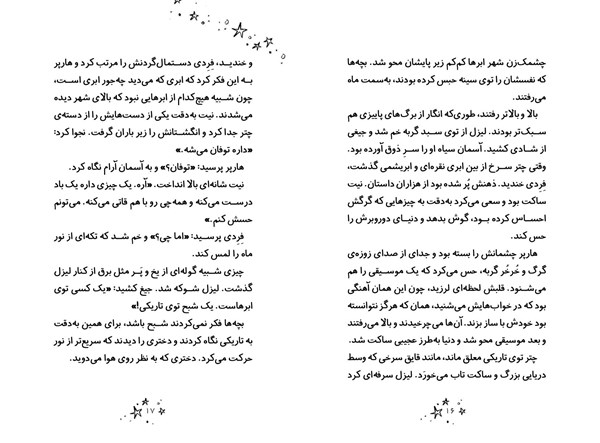 چشمک‌زن شهر ابرها کم‌کم زیر پایشان محو شد. بچه‌ها
که نفسشان را توی سینه حبس کرده بودند، به‌سمت ماه
می‌رفتند.
بالا و بالاتر رفتند، طوری‌که انگار از برگ‌های پاییزی هم
سبک‌تر بودند. لیزل از توی سبد گربه خم شد و جیغی
از شادی کشید. آسمان سیاه او را سرِ ذوق آورده بود.
وقتی چتر سرخ از بین ابری نقره‌ای و ابریشمی گذشت،
فِردی خندید. ذهنش پُر شده بود از هزاران داستان. نیت
ساکت بود و سعی می‌کرد به‌دقت به چیزهایی که گرگش
احساس کرده بـود، گوش بدهد و دنیـای دوروبرش را
حس کند.
هارپر چشمانش را بسته بود و جدای از صدای زوزه‌ی
گرگ و خُرخُر گربه، حس می‌کرد که یک موسیقی را هم
می‌شنود. قلبش لحظه‌ای لرزید، چون این همان آهنگی
بود که در خواب‌هایش می‌شنید، همان که هرگز نتوانسته
بود خودش با ساز بزند. آن‌ها می‌چرخیدند و بالا می‌رفتند
و بعد موسیقی محو شد و دنیا به‌طرز عجیبی ساکت شد.
چتر توی تاریکی معلق ماند، مانند قایق سرخی که وسط
دریایی بزرگ و ساکت تاب می‌خوزد. لیزل سرفه‌ای کرد
۱۶
و خندیـد، فِردی دستمال‌گردنش را مرتب کرد و هارپر
بـه این فکر کرد که ابری که می‌دید چه‌جور ابری اسـت،
چون شـبیه هیچ‌کدام از ابرهایی نبود که بالای شهر دیده
می‌شدند. نیت به‌دقت یکی از دست‌هایش را از دسته‌ی
چتر جدا کرد و انگشتانش را زیر باران گرفت. نجوا کرد:
«داره توفان می‌شه.»
هارپر پرسید: «توفان؟» و به آسمان آرام نگاه کرد.
نیت شانه‌ای بالا انداخت. «آره. یک چیزی داره یک باد
درسـت می‌کنه و همه‌چی رو با هم قاتی می‌کنه. می‌تونم
حسش کنم.»
فِردی پرسـید: «اما چی؟» و خم شـد که تکه‌ای از نور
ماه را لمس کند.
چیزی شـبیه گوله‌ای از یخ و پَـر مثل برق از کنار لیزل
گذشت. لیزل شـوکه شـد. جیغ کشید: «یک کسی توی
ابرهاست. یک شبح توی تاریکی!»
بچه‌ها فکر نمی‌کردند شـبح باشد، برای همین به‌دقت
به تاریکی نگاه کردند و دختری را دیدند که سریع‌تر از نور
حرکت می‌کرد. دختری که به نظر روی هوا می‌دوید.
۱۷